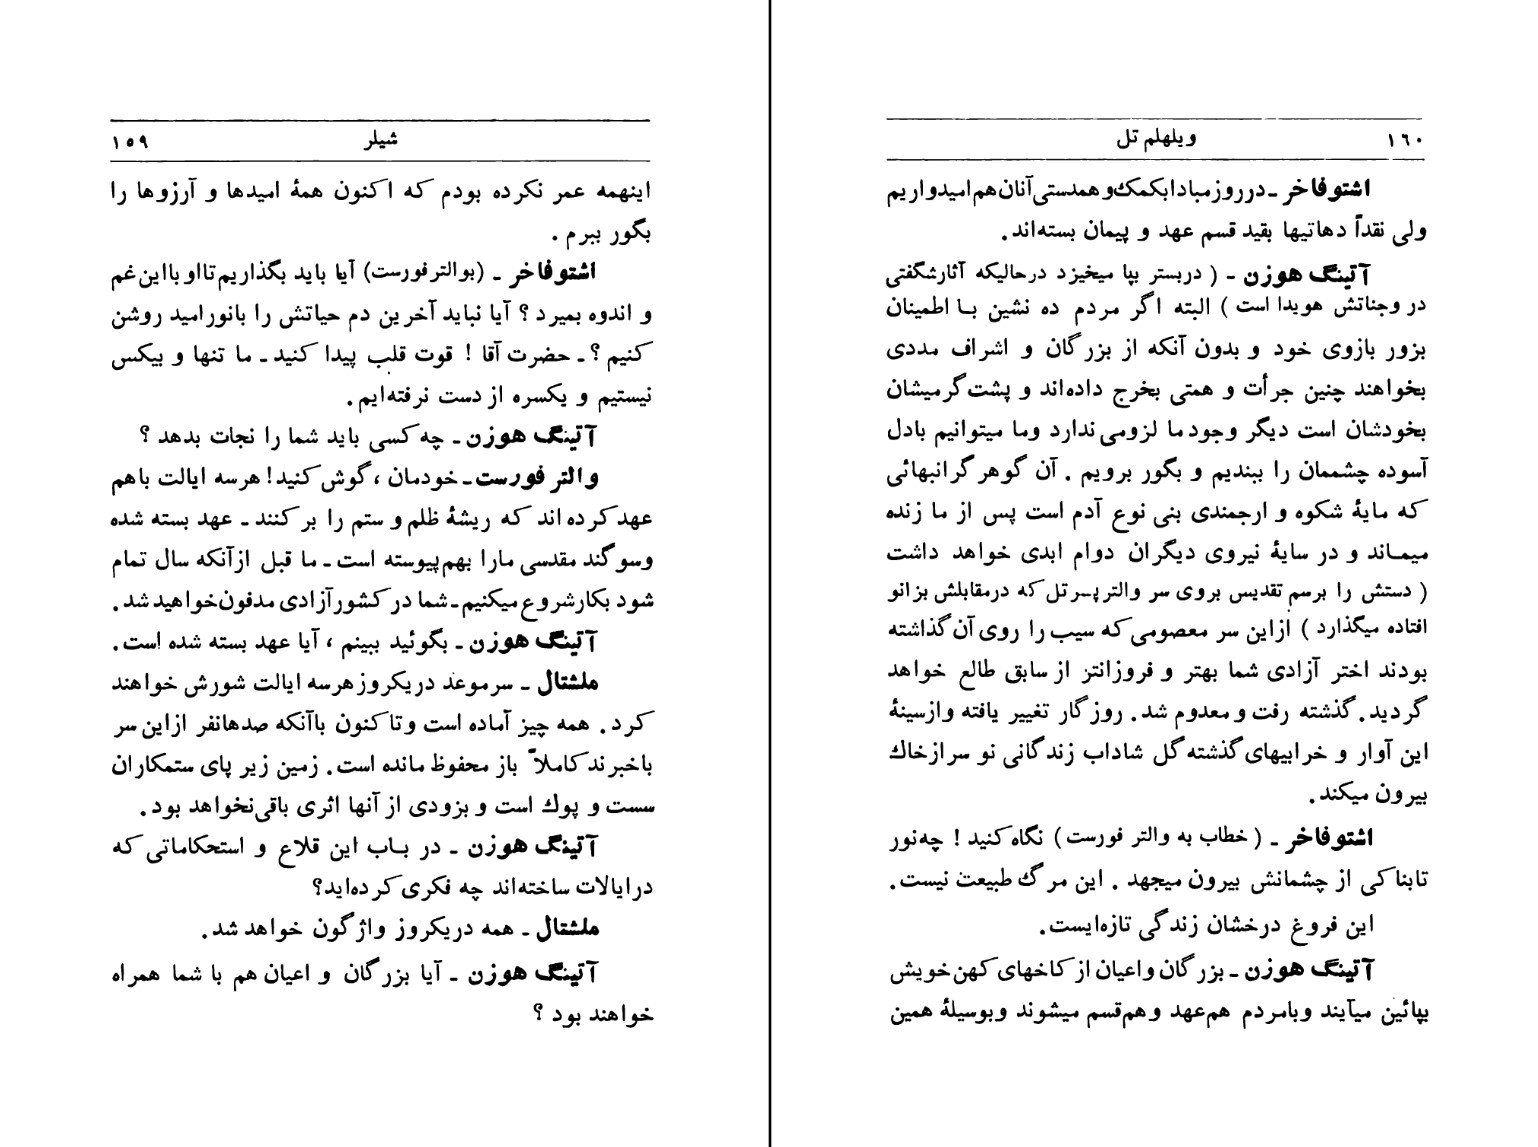 شیلر ۱۵۹
اینهمه عمر نکرده بودم که اکنون همهٔ امیدها و آرزوها را
بگور ببرم .
اشتوفاخر ـ (بوالترفورست) آیا باید بگذاریم تا او با این غم
و اندوه بمیرد ؟ آیا نباید آخرین دم حیاتش را بانور امید روشن
کنیم ؟ ـ حضرت آقا ! قوت قلب پیدا کنید ـ ما تنها و بیکس
نیستیم و یکسره از دست نرفته‌ایم .
آتینگ هوزن ـ چه کسی باید شما را نجات بدهد ؟
والتر فورست ـ خودمان ، گوش کنید! هرسه ایالت باهم
عهد کرده اند که ریشهٔ ظلم و ستم را بر کنند ـ عهد بسته شده
وسوگند مقدسی مارا بهم پیوسته است ـ ما قبل از آنکه سال تمام
شود بکار شروع میکنیم ـ شما در کشور آزادی مدفون خواهید شد .
آتینگ هوزن ـ بگوئید ببینم ، آیا عهد بسته شده است .
ملشتال ـ سر موعد دریکروز هرسه ایالت شورش خواهند
کرد . همه چیز آماده است و تاکنون باآنکه صدهانفر ازاین سر
باخبرند کاملاً باز محفوظ مانده است . زمین زیر پای ستمکاران
سست و پوك است و بزودی از آنها اثری باقی نخواهد بود .
آتینگ هوزن ـ در بـاب این قلاع و استحکاماتی که
درایالات ساخته‌اند چه فکری کرده‌اید؟
ملشتال ـ همه دریکروز واژگون خواهد شد .
آتینگ هوزن ـ آیا بزرگان و اعیان هم با شما همراه
خواهند بود ؟
ویلهلم تل ۱۶۰
اشتوفاخر ـ درروز مبادا بکمك و همدستی آنان هم امیدواریم
ولی نقداً دهاتیها بقید قسم عهد و پیمان بسته‌اند .
آتینگ هوزن ـ ( دربستر بپا میخیزد درحالیکه آثار شگفتی
در وجناتش هویدا است ) البته اگر مردم ده نشین بـا اطمینان
بزور بازوی خود و بدون آنکه از بزرگان و اشراف مددی
بخواهند چنین جرأت و همتی بخرج داده‌اند و پشت گرمیشان
بخودشان است دیگر وجود ما لزومی ندارد وما میتوانیم بادل
آسوده چشممان را ببندیم و بگور برویم . آن گوهر گرانبهائی
که مایهٔ شکوه و ارجمندی بنی نوع آدم است پس از ما زنده
میمـاند و در سایهٔ نیروی دیگران دوام ابدی خواهد داشت
( دستش را برسم تقدیس بروی سر والتر پسر تل که درمقابلش بزانو
افتاده میگذارد ) ازاین سر معصومی که سیب را روی آن گذاشته
بودند اختر آزادی شما بهتر و فروزانتز از سابق طالع خواهد
گردید . گذشته رفت و معدوم شد . روزگار تغییر یافته وازسینهٔ
این آوار و خرابیهای گذشته گل شاداب زندگانی نو سرازخاك
بیرون میکند .
اشتوفاخر ـ ( خطاب به والتر فورست ) نگاه کنید ! چه نور
تابناکی از چشمانش بیرون میجهد . این مرگ طبیعت نیست .
این فروغ درخشان زندگی تازه‌ایست .
آتینگ هوزن ـ بزرگان واعیان از کاخهای کهن خویش
بپائین میآیند وبامردم هم‌عهد وهم‌قسم میشوند وبوسیلهٔ همین